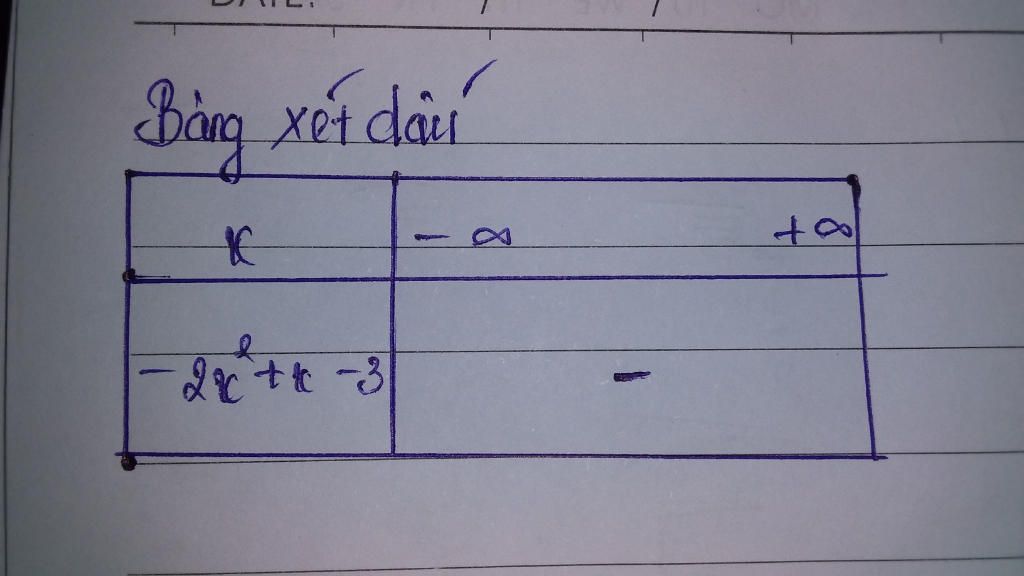 DATE: / /
Bảng xét dấu
x - ∞ + ∞
- 2x² + x - 3 -